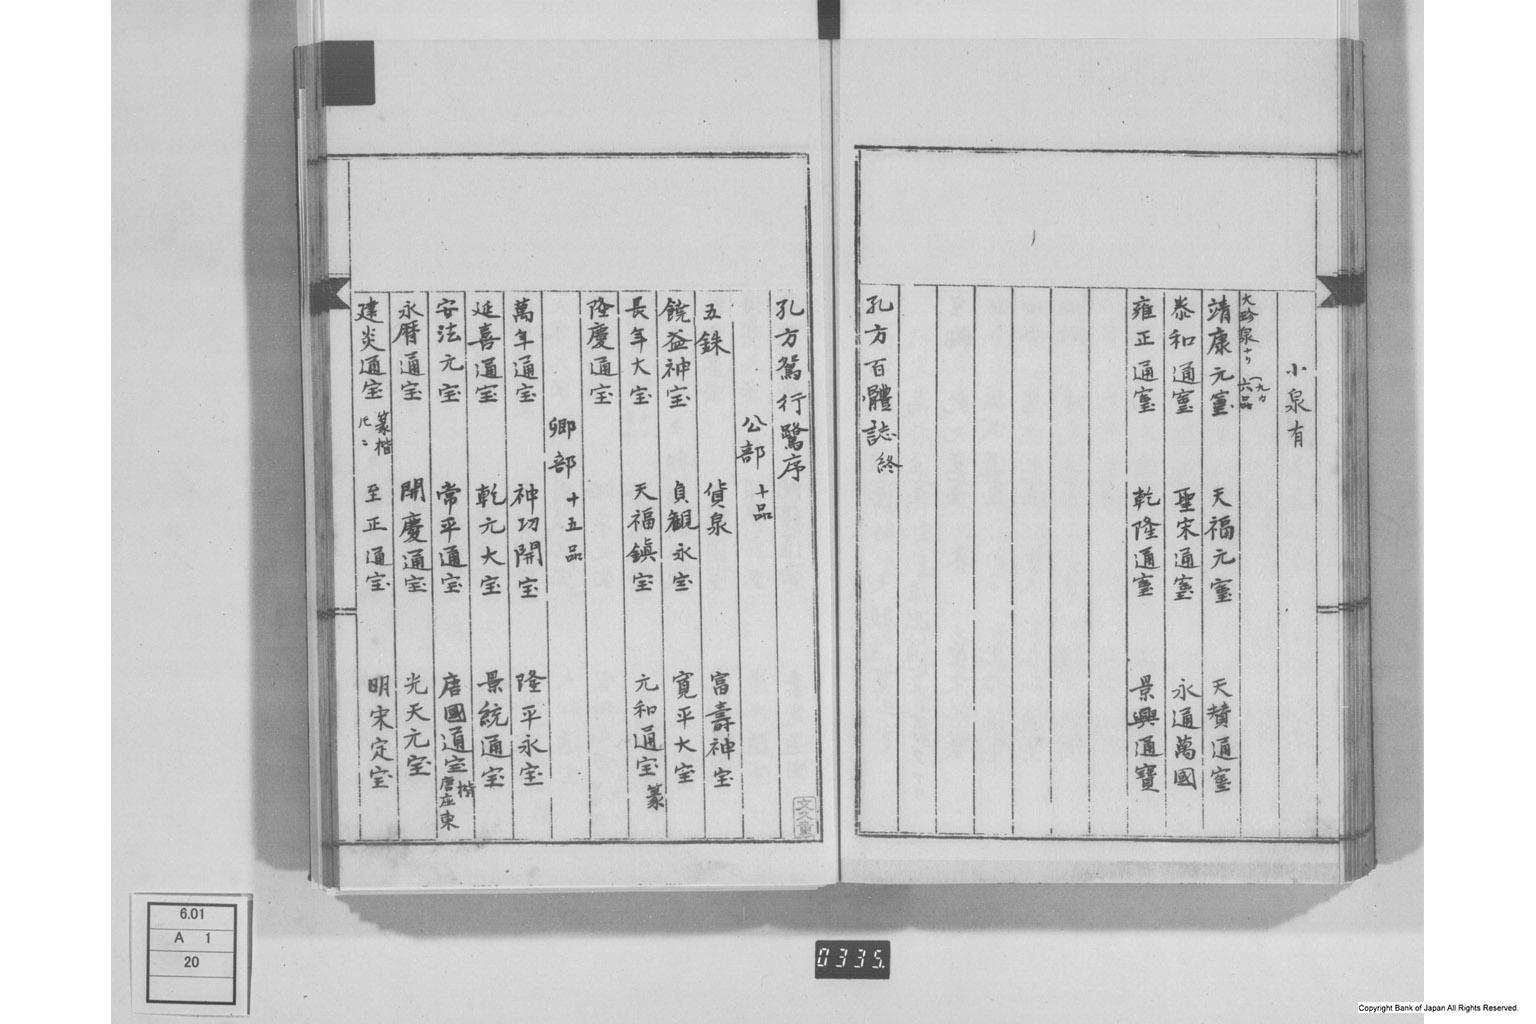 小泉有
大珍泉十り 六品
靖康元寳 天福元寳 天賛通寳
泰和通寳 聖宋通寳 永通萬國
雍正通寳 乾隆通寳 景興通寶
孔方百體誌終
孔方鴛行鷺序
公部 十品
五銖 貨泉 富壽神宝
饒益神宝 貞観永宝 寛平大宝
長年大宝 天福鎮宝 元和通宝 篆
隆慶通宝
卿部 十五品
萬年通宝 神功開宝 隆平永宝
延喜通宝 乾元大宝 景統通宝
安法元宝 常平通宝 唐國通宝 楷
永暦通宝 開慶通宝 光天元宝
建炎通宝 篆楷 至正通宝 明宋定宝
6.01
A 1
20
0335.
Copyright Bank of Japan All Rights Reserved.